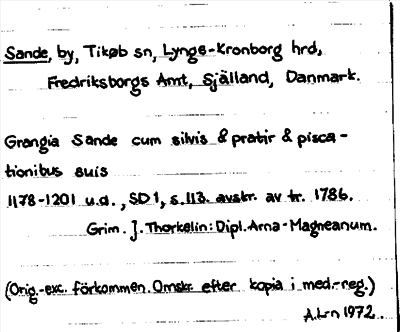 Sande, by, Tikøb sn, Lynge-Kronborg hrd,
Fredriksborgs Amt, Själland, Danmark.
Grangia Sande cum silvis & pratir & pisca-
tionibus suis
1178-1201 u.d., SD 1, s. 113. avskr. av tr. 1786.
Grim. J. Thorkelin: Dipl. Arna-Magneanum.
(Orig.-ex. förkommen. Omskr. efter kopia i med.-reg.)
A.L-n 1972.